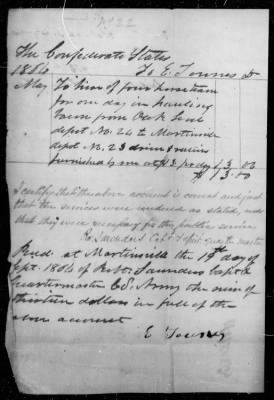 The Confederate States
1864 To E. Townes Dr
May To hire of four horse team
for one day in hauling
bacon from Oak Level
depot No. 24 to Martinsville
depot No. 23 driver & rations
furnished by owner at $13 pr day $13.00
$13.00
I certify that the above account is correct and just
that the services were rendered as stated, and
that they were necessary for the public service
Ro. Saunders Capt & Qur. master
Recd. at Martinsville the 19th day of
Sept. 1864 of Ro. Saunders Capt &
Quartermaster C.S. Army the sum of
thirteen dollars in full of the
above account
E Townes